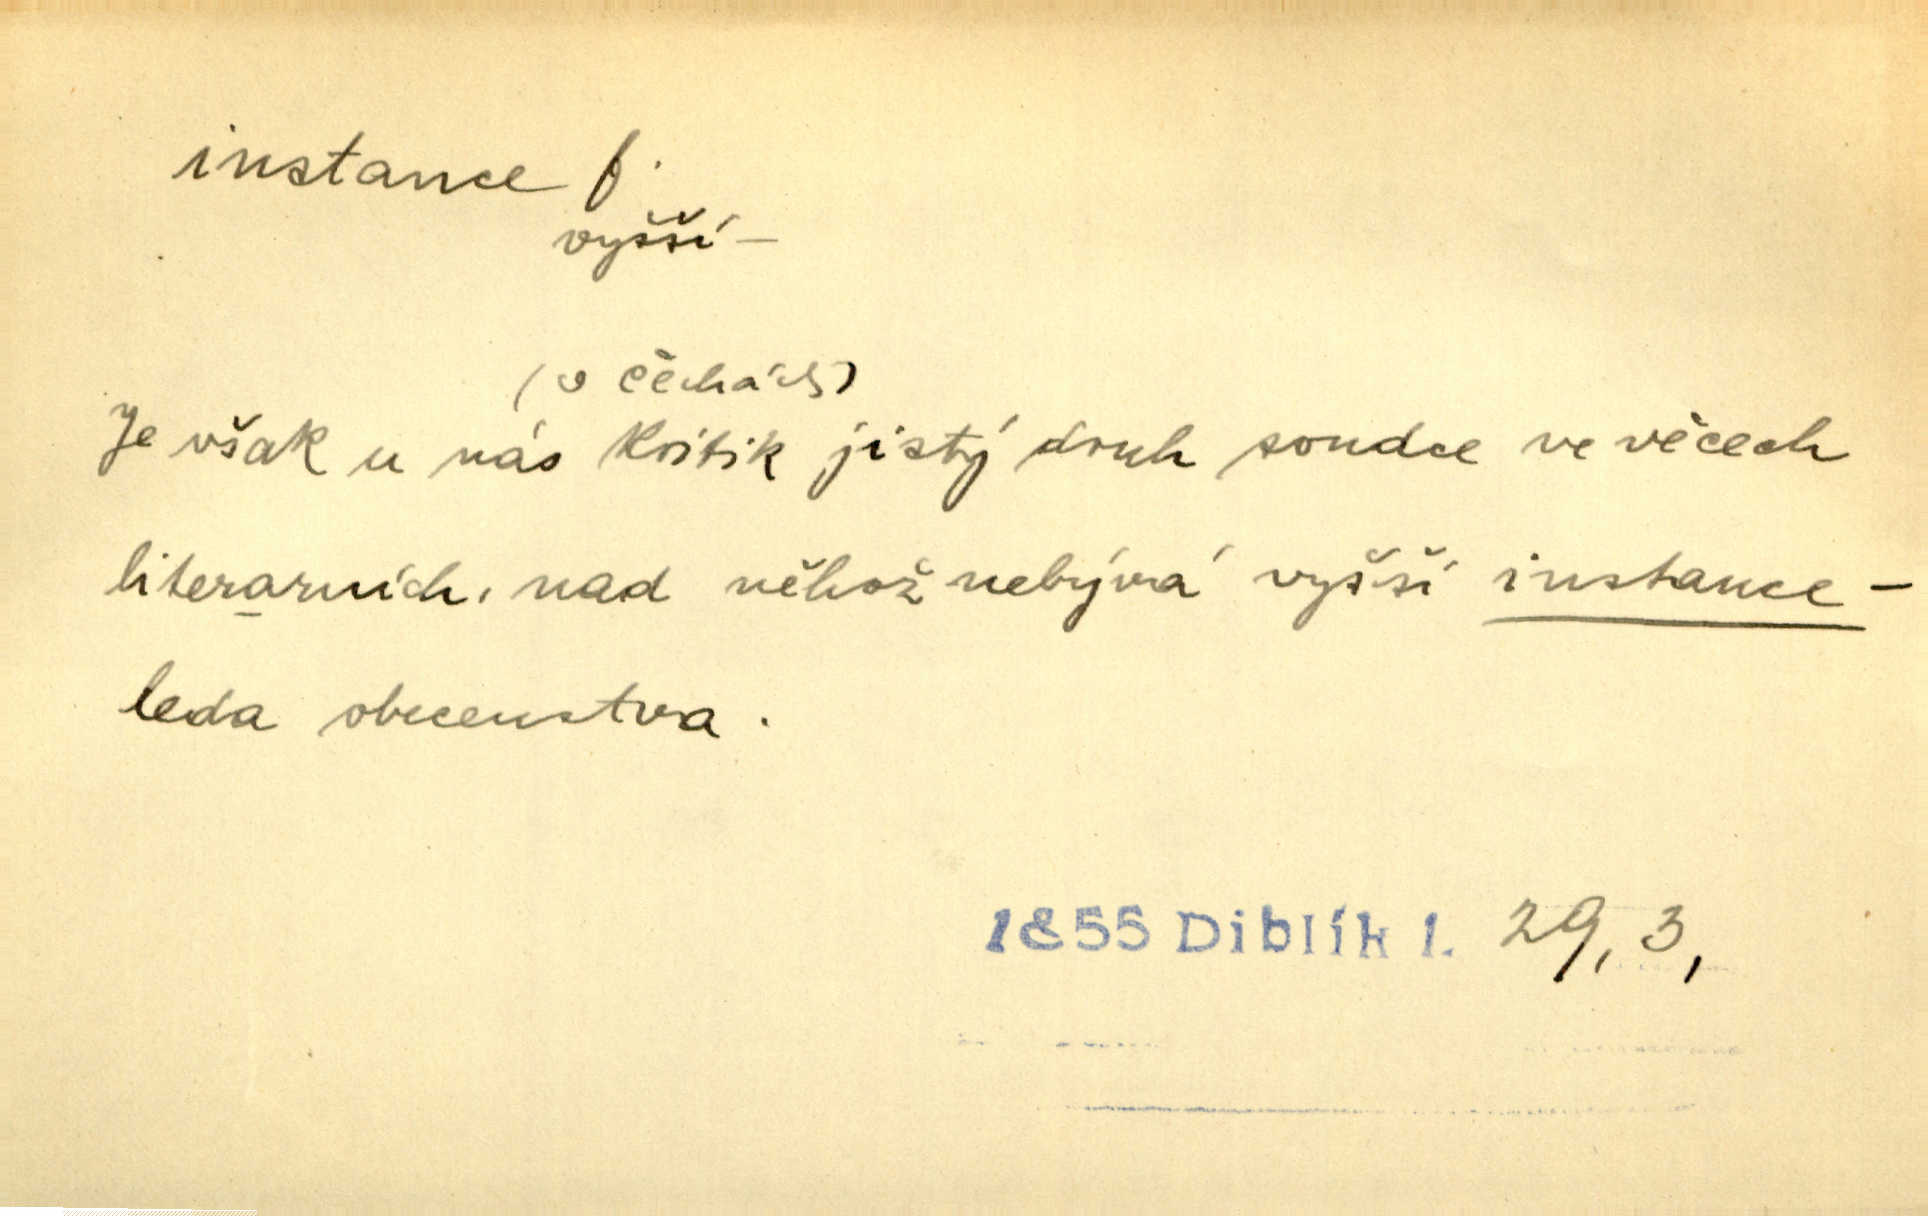 instance f.
vyšší –
(v Čechách)
Je však u nás kritik jistý druh soudce ve věcech
literarních, nad něhož nebývá vyšší instance –
leda obecenstva.
1855 Diblík 1. 29, 3,